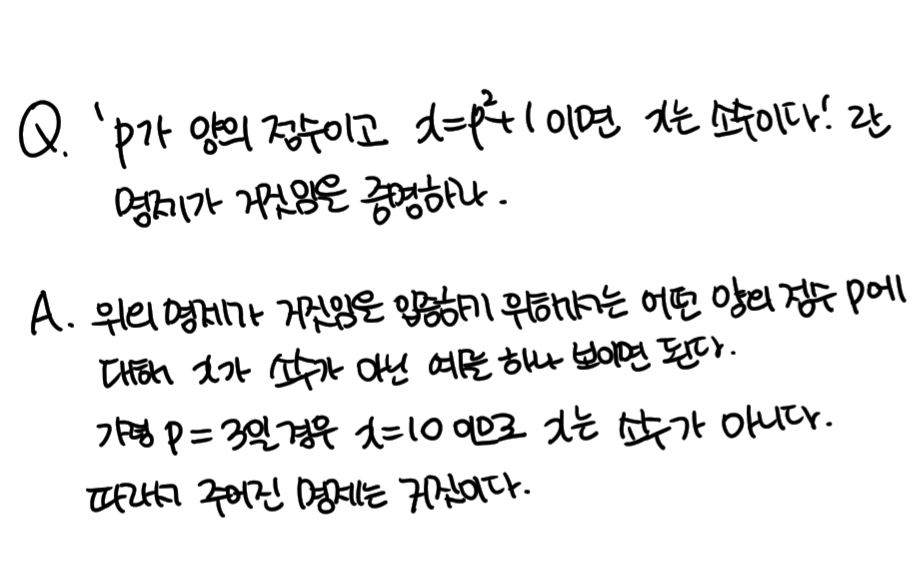 Q. 'p가 양의 정수이고 x=p²+1 이면 x는 소수이다.' 란
명제가 거짓임을 증명하라.
A. 위의 명제가 거짓임을 입증하기 위해서는 어떤 양의 정수 p에
대해 x가 소수가 아닌 예를 하나 보이면 된다.
가령 p=3일 경우 x=10 이므로 x는 소수가 아니다.
따라서 주어진 명제는 거짓이다.